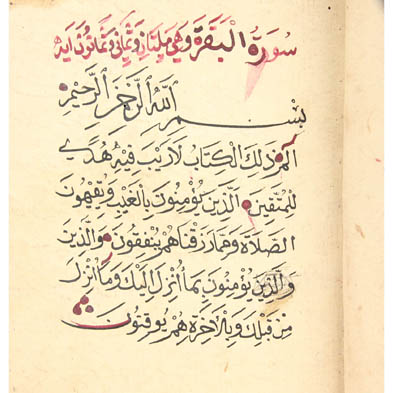 سورة البقرة وهي مايتان وثماني وثمانون آية
بسم الله الرحمن الرحيم
الم ذلك الكتاب لا ريب فيه هدي
للمتقين الذين يؤمنون بالغيب ويقيمون
الصلاة ومما رزقناهم ينفقون والذين
والذين يؤمنون بما أنزل اليك وما أنزل
من قبلك وبالاخرة هم يوقنون